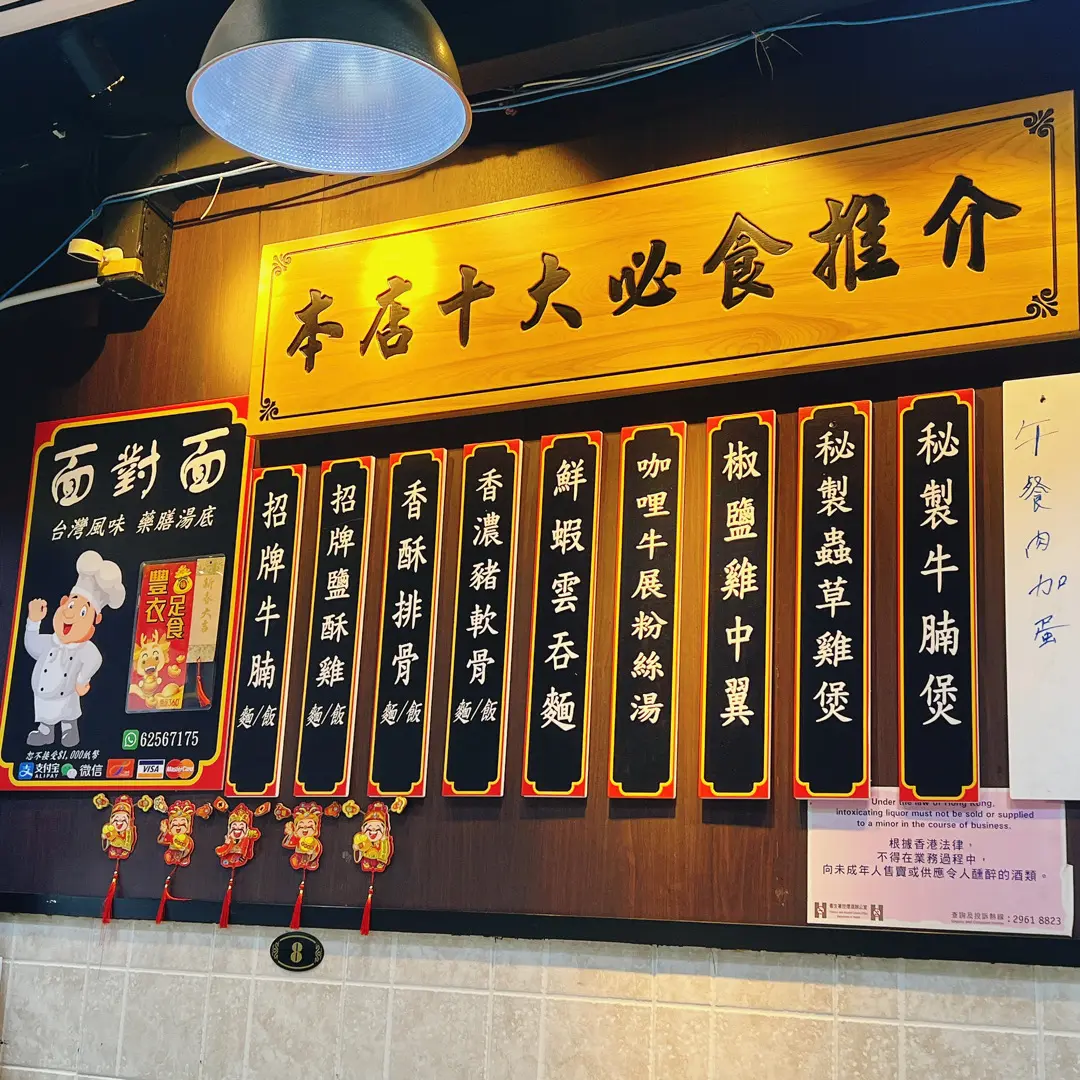 本店十大必食推介
面對面
台灣風味 藥膳湯底
豐衣
足食
新春大吉
62567175
恕不接受$1,000紙幣
支付宝
ALIPAY
微信
VISA
MasterCard
招牌牛腩麵/飯
招牌鹽酥雞麵/飯
香酥排骨麵/飯
香濃豬軟骨麵/飯
鮮蝦雲吞麵
咖哩牛展粉絲湯
椒鹽雞中翼
秘製蟲草雞煲
秘製牛腩煲
午餐肉加蛋
Under the law of Hong Kong,
intoxicating liquor must not be sold or supplied
to a minor in the course of business.
根據香港法律，
不得在業務過程中，
向未成年人售賣或供應令人醺醉的酒類。
查詢及投訴熱線：2961 8823
8